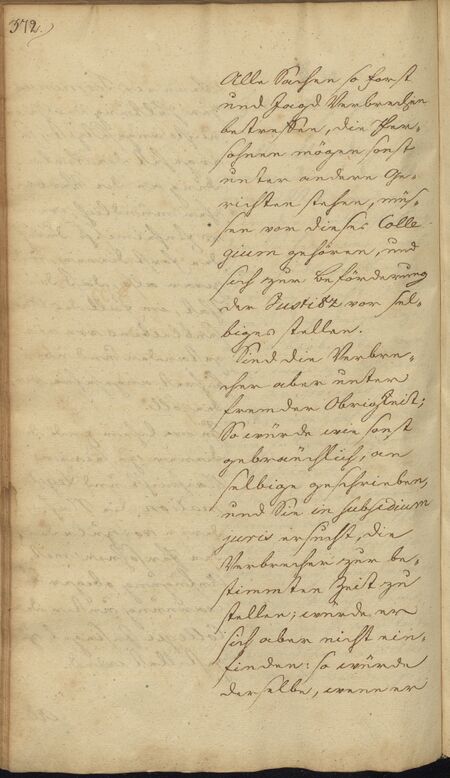 372.
Alle Sachen so Forst
und Jagd Verbrechen
betreffen, die Per-
sohnen mögen sonst
unter andere Ge-
richten stehen, müs-
sen vor dieses Colle-
gium gehören, und
sich zur Beförderung
der Justitz vor sel-
biges stellen.
Sind die Verbre-
cher aber unter
fremder Obrigkeit;
So würde wie sonst
gebräuchlich, an
selbige geschrieben,
und Sie in subsidium
juris ersucht, die
Verbrecher zur be-
stimmten Zeit zu
stellen; würde er
sich aber nicht ein-
finden: so würde
derselbe, wenn er